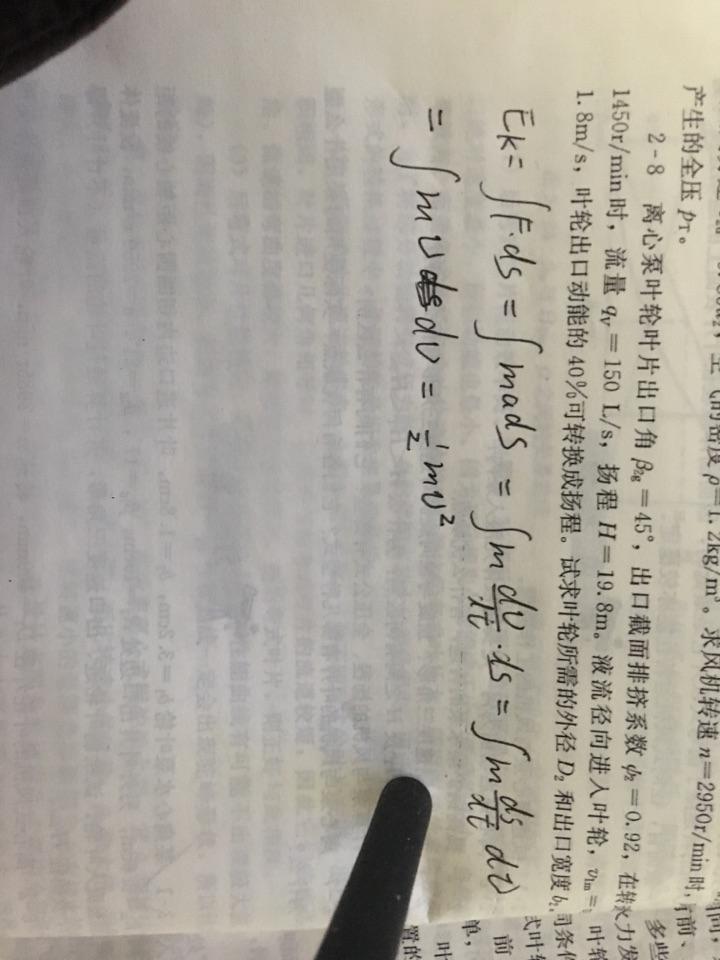 空气的密度 ρ=1.2kg/m³。求风机转速 n=2950r/min 时,
产生的全压 pT。
2-8 离心泵叶轮叶片出口角 β2g=45°, 出口截面排挤系数 ψ2=0.92, 在转
1450r/min 时, 流量 qV=150 L/s, 扬程 H=19.8m。液流径向进入叶轮, v1m=
1.8m/s, 叶轮出口动能的 40%可转换成扬程。试求叶轮所需的外径 D2 和出口宽度 b2
Ek= ∫F·ds = ∫mads = ∫m dv/dt ·ds = ∫m ds/dt dv
= ∫mvdv = 1/2 mv²